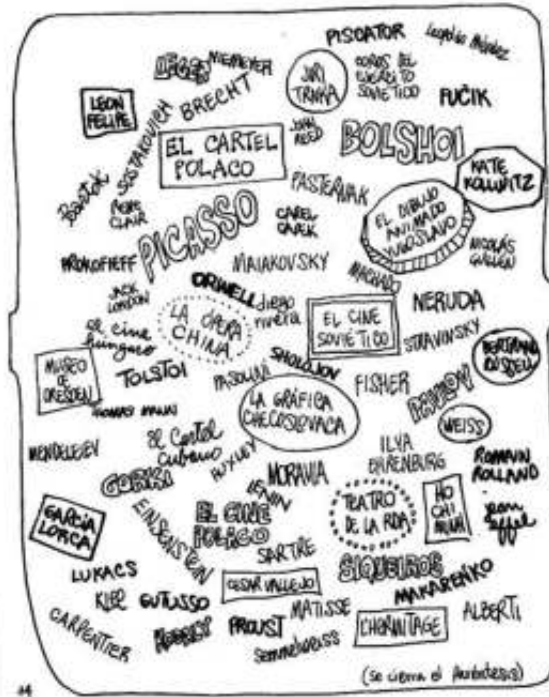 PISCATOR
Leopoldo Méndez
NIEMEYER
JIRI
TRNKA
COROS DEL
EJERCITO
SOVIÉTICO
LEON
FELIPE
BRECHT
FUČIK
SOSTAKOVICH
JOHN
REED
BOLSHOI
EL CARTEL
POLACO
KATE
KOLLWITZ
Bartok
RENE
CLAIR
PASTERNAK
PICASSO
CAREL
CAPEK
EL DIBUJO
ANIMADO
YUGOSLAVO
NICOLÁS
GUILLEN
PROKOFIEFF
MAIAKOVSKY
MACHADO
JACK
LONDON
ORWELL
diego
rivera
NERUDA
LA ÓPERA
CHINA
EL CINE
SOVIÉTICO
STRAVINSKY
el cine
húngaro
SHOLOJOV
BERTRAND
RUSSELL
MUSEO
DE
DRESDEN
TOLSTOI
PASOLINI
FISHER
PAVLOV
THOMAS MANN
LA GRÁFICA
CHECOSLOVACA
WEISS
MENDELEIEV
el Cartel
Cubano
HUXLEY
MORAVIA
ILYA
EHRENBURG
ROMAIN
ROLLAND
GORKI
LENIN
TEATRO
DE LA RDA
HO
CHI
MINH
jean
effel
GARCIA
LORCA
EINSENSTEIN
EL CINE
POLACO
SARTRE
SIQUEIROS
LUKACS
CESAR VALLEJO
MAKARENKO
KLEE
GUTUSSO
MATISSE
ALBERTI
CARPENTIER
PROUST
Semmelweiss
L'HERMITAGE
(se cierra el paréntesis)